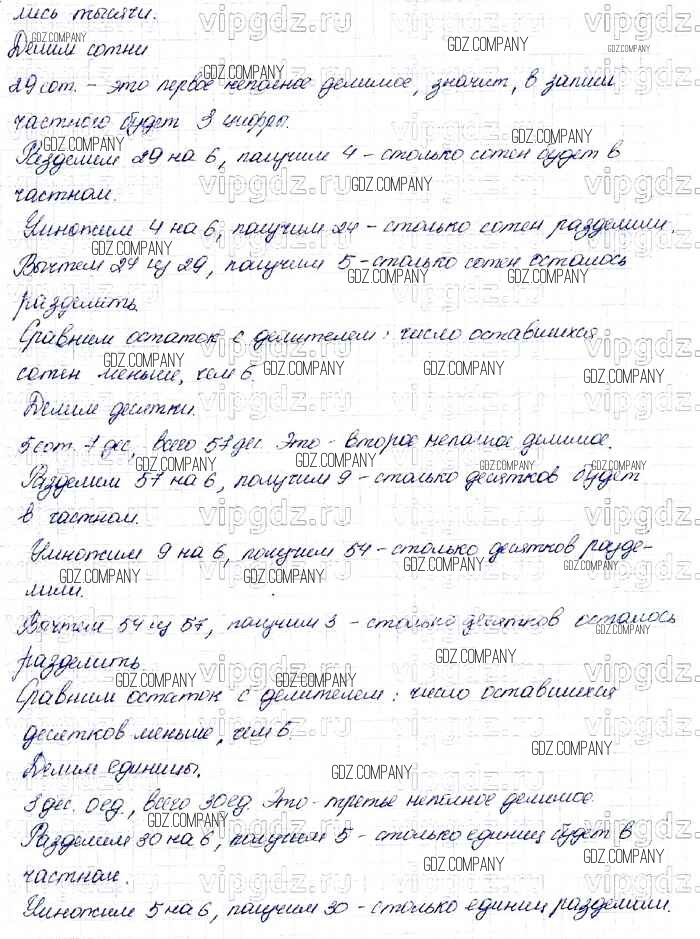 лись тысячи.
Делим сотни
29 сот. - это первое неполное делимое, значит, в записи
частного будет 3 цифры.
Разделим 29 на 6, получим 4 - столько сотен будет в
частном.
Умножим 4 на 6, получим 24 - столько сотен разделили.
Вычтем 24 из 29, получим 5 - столько сотен осталось
разделить.
Сравним остаток с делителем: число оставшихся
сотен меньше, чем 6.
Делим десятки.
5 сот. 7 дес., всего 57 дес. Это - второе неполное делимое.
Разделим 57 на 6, получим 9 - столько десятков будет
в частном.
Умножим 9 на 6, получим 54 - столько десятков разде-
лили.
Вычтем 54 из 57, получим 3 - столько десятков осталось
разделить.
Сравним остаток с делителем: число оставшихся
десятков меньше, чем 6.
Делим единицы.
3 дес. 0 ед., всего 30 ед. Это - третье неполное делимое.
Разделим 30 на 6, получим 5 - столько единиц будет в
частном.
Умножим 5 на 6, получим 30 - столько единиц разделили.